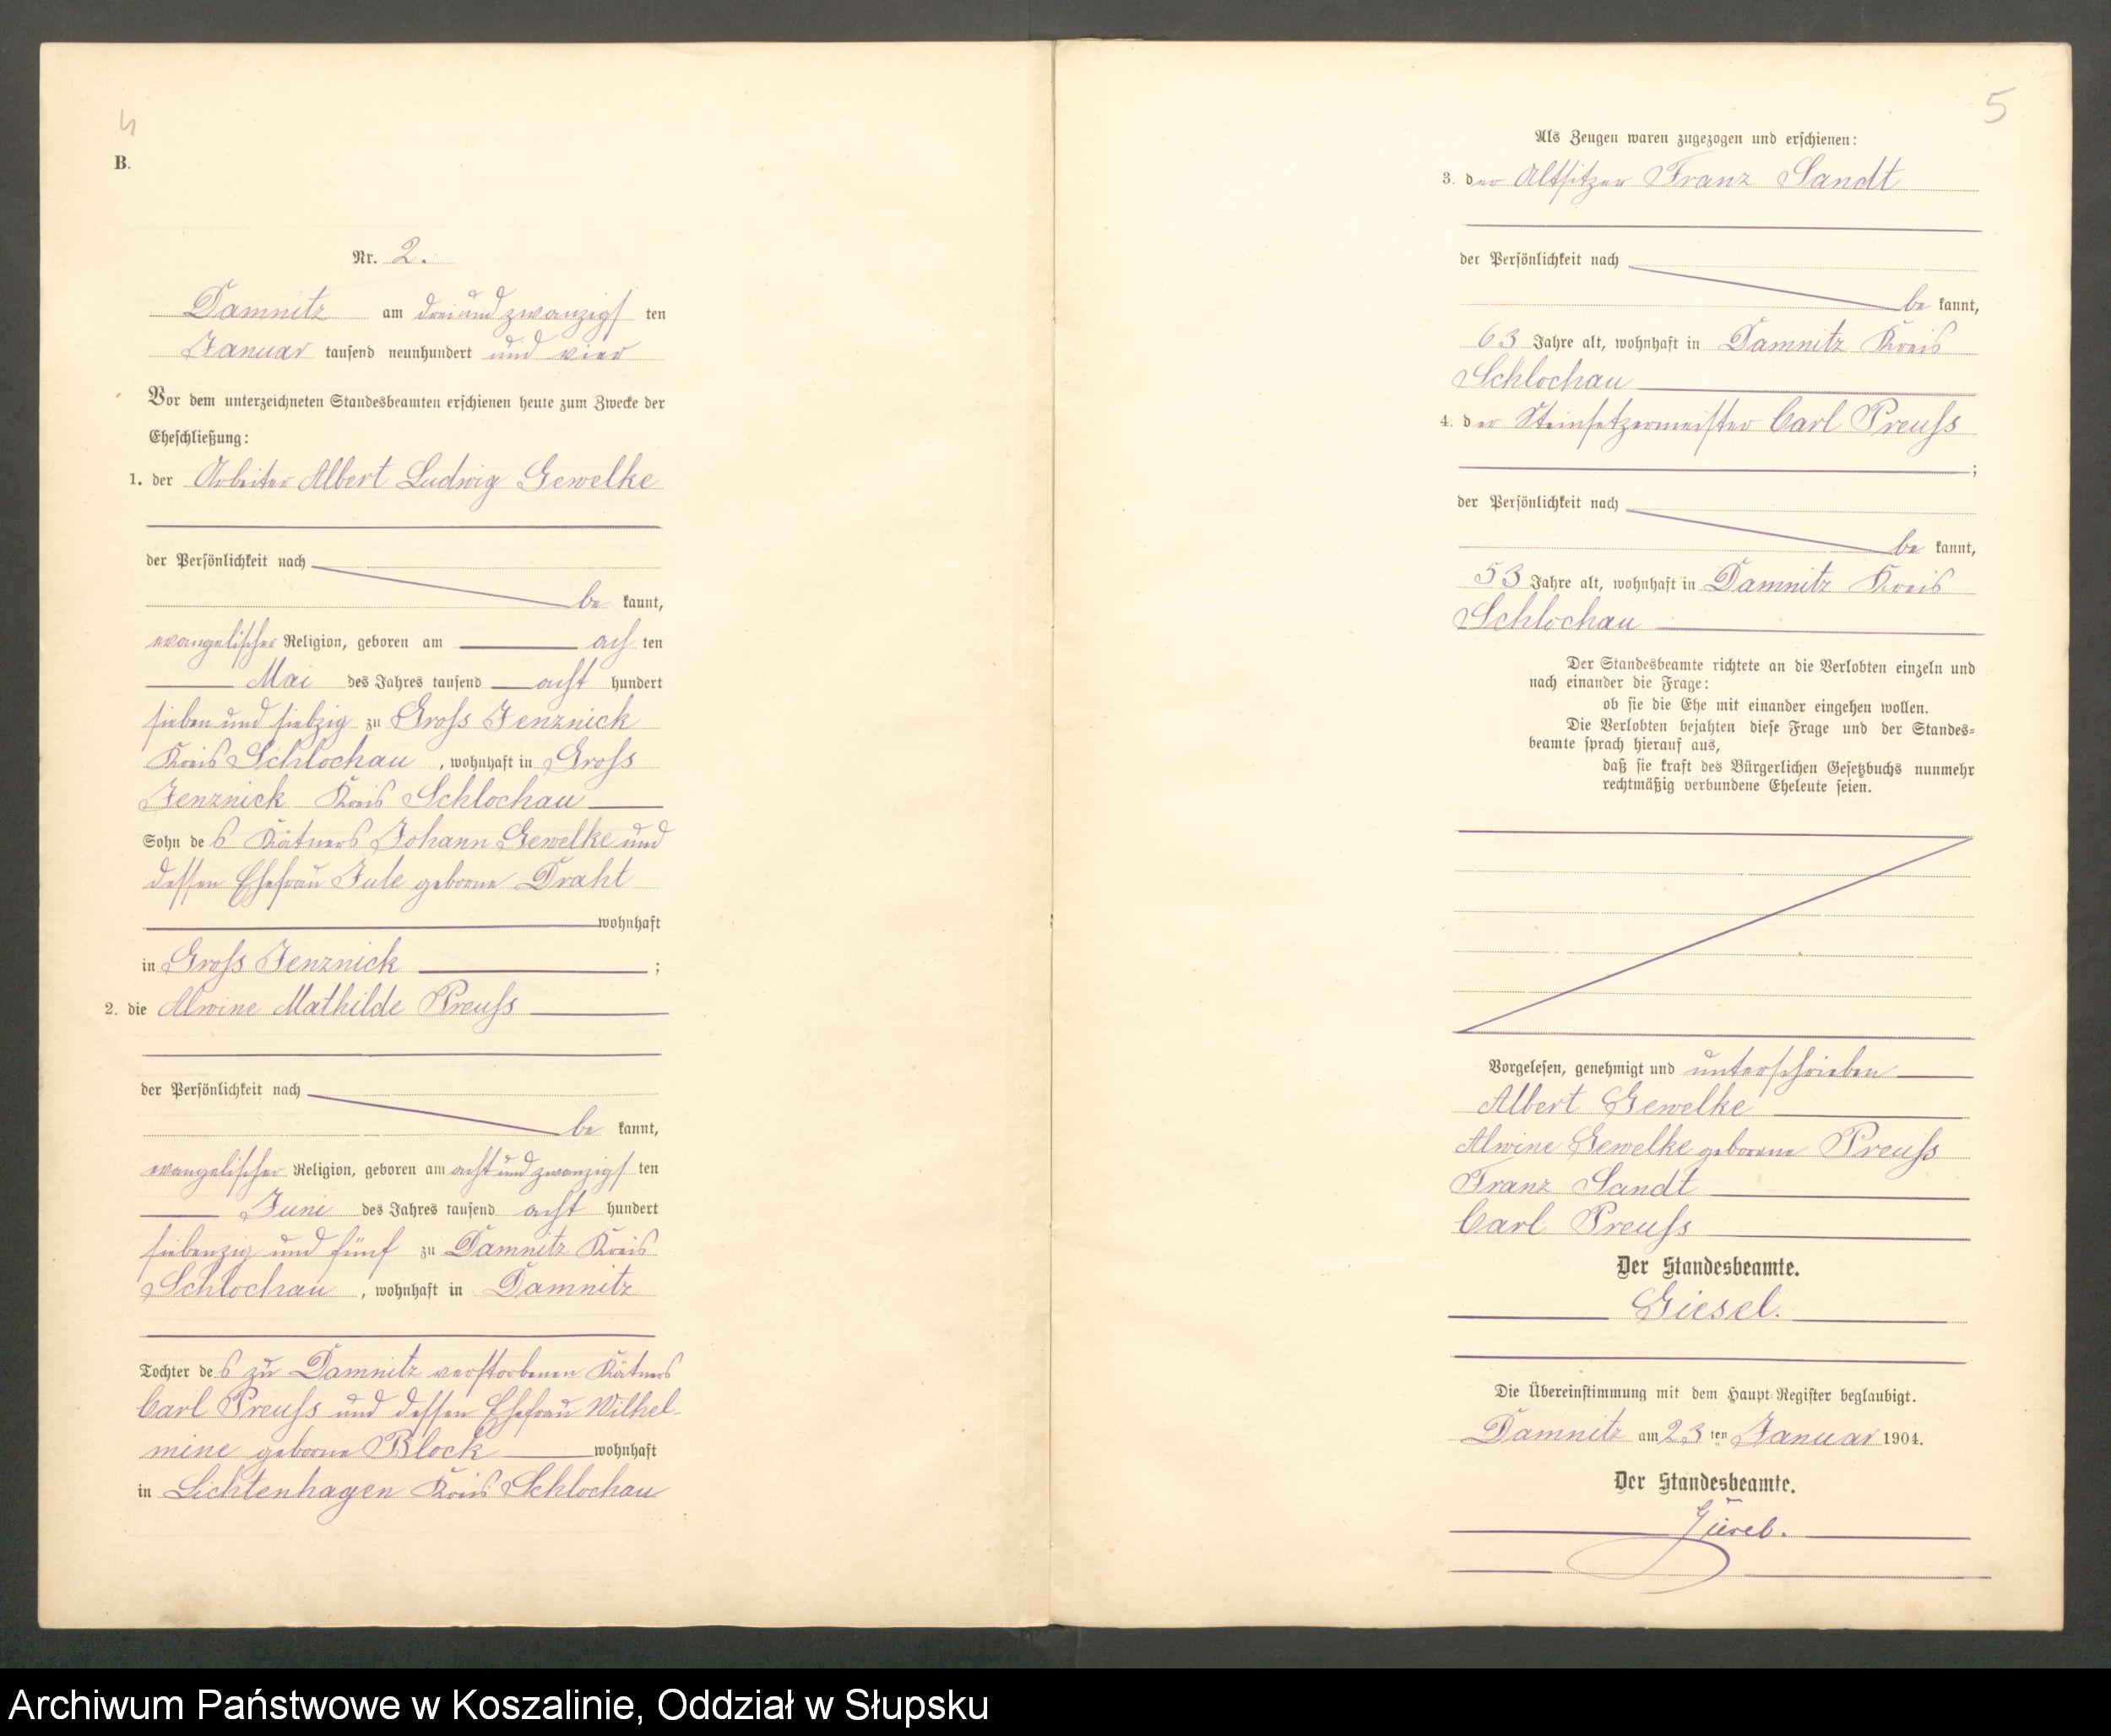 4
B.
Nr. 2.
Damnitz am drei und zwanzigsten
Januar tausend neunhundert und vier
Vor dem unterzeichneten Standesbeamten erschienen heute zum Zwecke der
Eheschließung:
1. der Arbeiter Albert Ludwig Gewelke
der Persönlichkeit nach
be kannt,
evangelischer Religion, geboren am ach ten
Mai des Jahres tausend acht hundert
sieben und siebzig zu Gross Jenznick
Kreis Schlochau, wohnhaft in Gross
Jenznick Kreis Schlochau
Sohn des Kätners Johann Gewelke und
dessen Ehefrau Jule geborne Draht
wohnhaft
in Gross Jenznick ;
2. die Alwine Mathilde Preuss
der Persönlichkeit nach
be kannt,
evangelischer Religion, geboren am acht und zwanzigsten
Juni des Jahres tausend acht hundert
siebenzig und fünf zu Damnitz Kreis
Schlochau, wohnhaft in Damnitz
Tochter des zu Damnitz verstorbenen Kätners
Carl Preuss und dessen Ehefrau Wilhel-
mine geborne Block wohnhaft
in Lichtenhagen Kreis Schlochau
5
Als Zeugen waren zugezogen und erschienen:
3. der Altsitzer Franz Sandt
der Persönlichkeit nach
be kannt,
63 Jahre alt, wohnhaft in Damnitz Kreis
Schlochau
4. der Steinsetzermeister Carl Preuss
;
der Persönlichkeit nach
be kannt,
53 Jahre alt, wohnhaft in Damnitz Kreis
Schlochau
Der Standesbeamte richtete an die Verlobten einzeln und
nach einander die Frage:
ob sie die Ehe mit einander eingehen wollen.
Die Verlobten bejahten diese Frage und der Standes=
beamte sprach hierauf aus,
daß sie kraft des Bürgerlichen Gesetzbuchs nunmehr
rechtmäßig verbundene Eheleute seien.
Vorgelesen, genehmigt und unterschrieben
Albert Gewelke
Alwine Gewelke geborene Preuss
Franz Sandt
Carl Preuss
Der Standesbeamte.
Giesel.
Die Übereinstimmung mit dem Haupt-Register beglaubigt.
Damnitz am 23 ten Januar 1904.
Der Standesbeamte.
Archiwum Państwowe w Koszalinie, Oddział w Słupsku